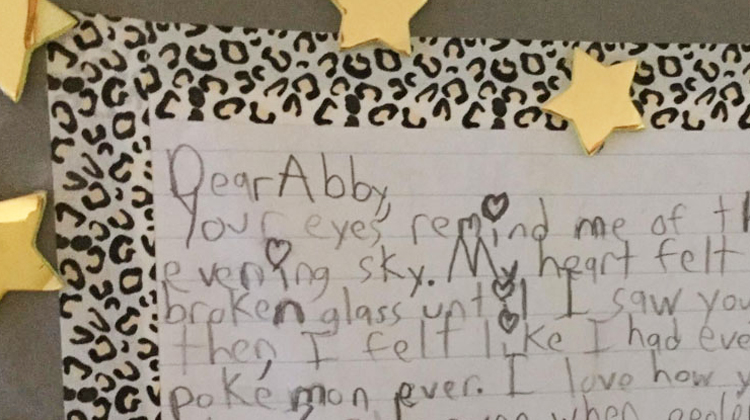 Dear Abby,
Your eyes remind me of th
evening sky. My heart felt
broken glass until I saw you
then I felt like I had eve
pokémon ever. I love how y
when people